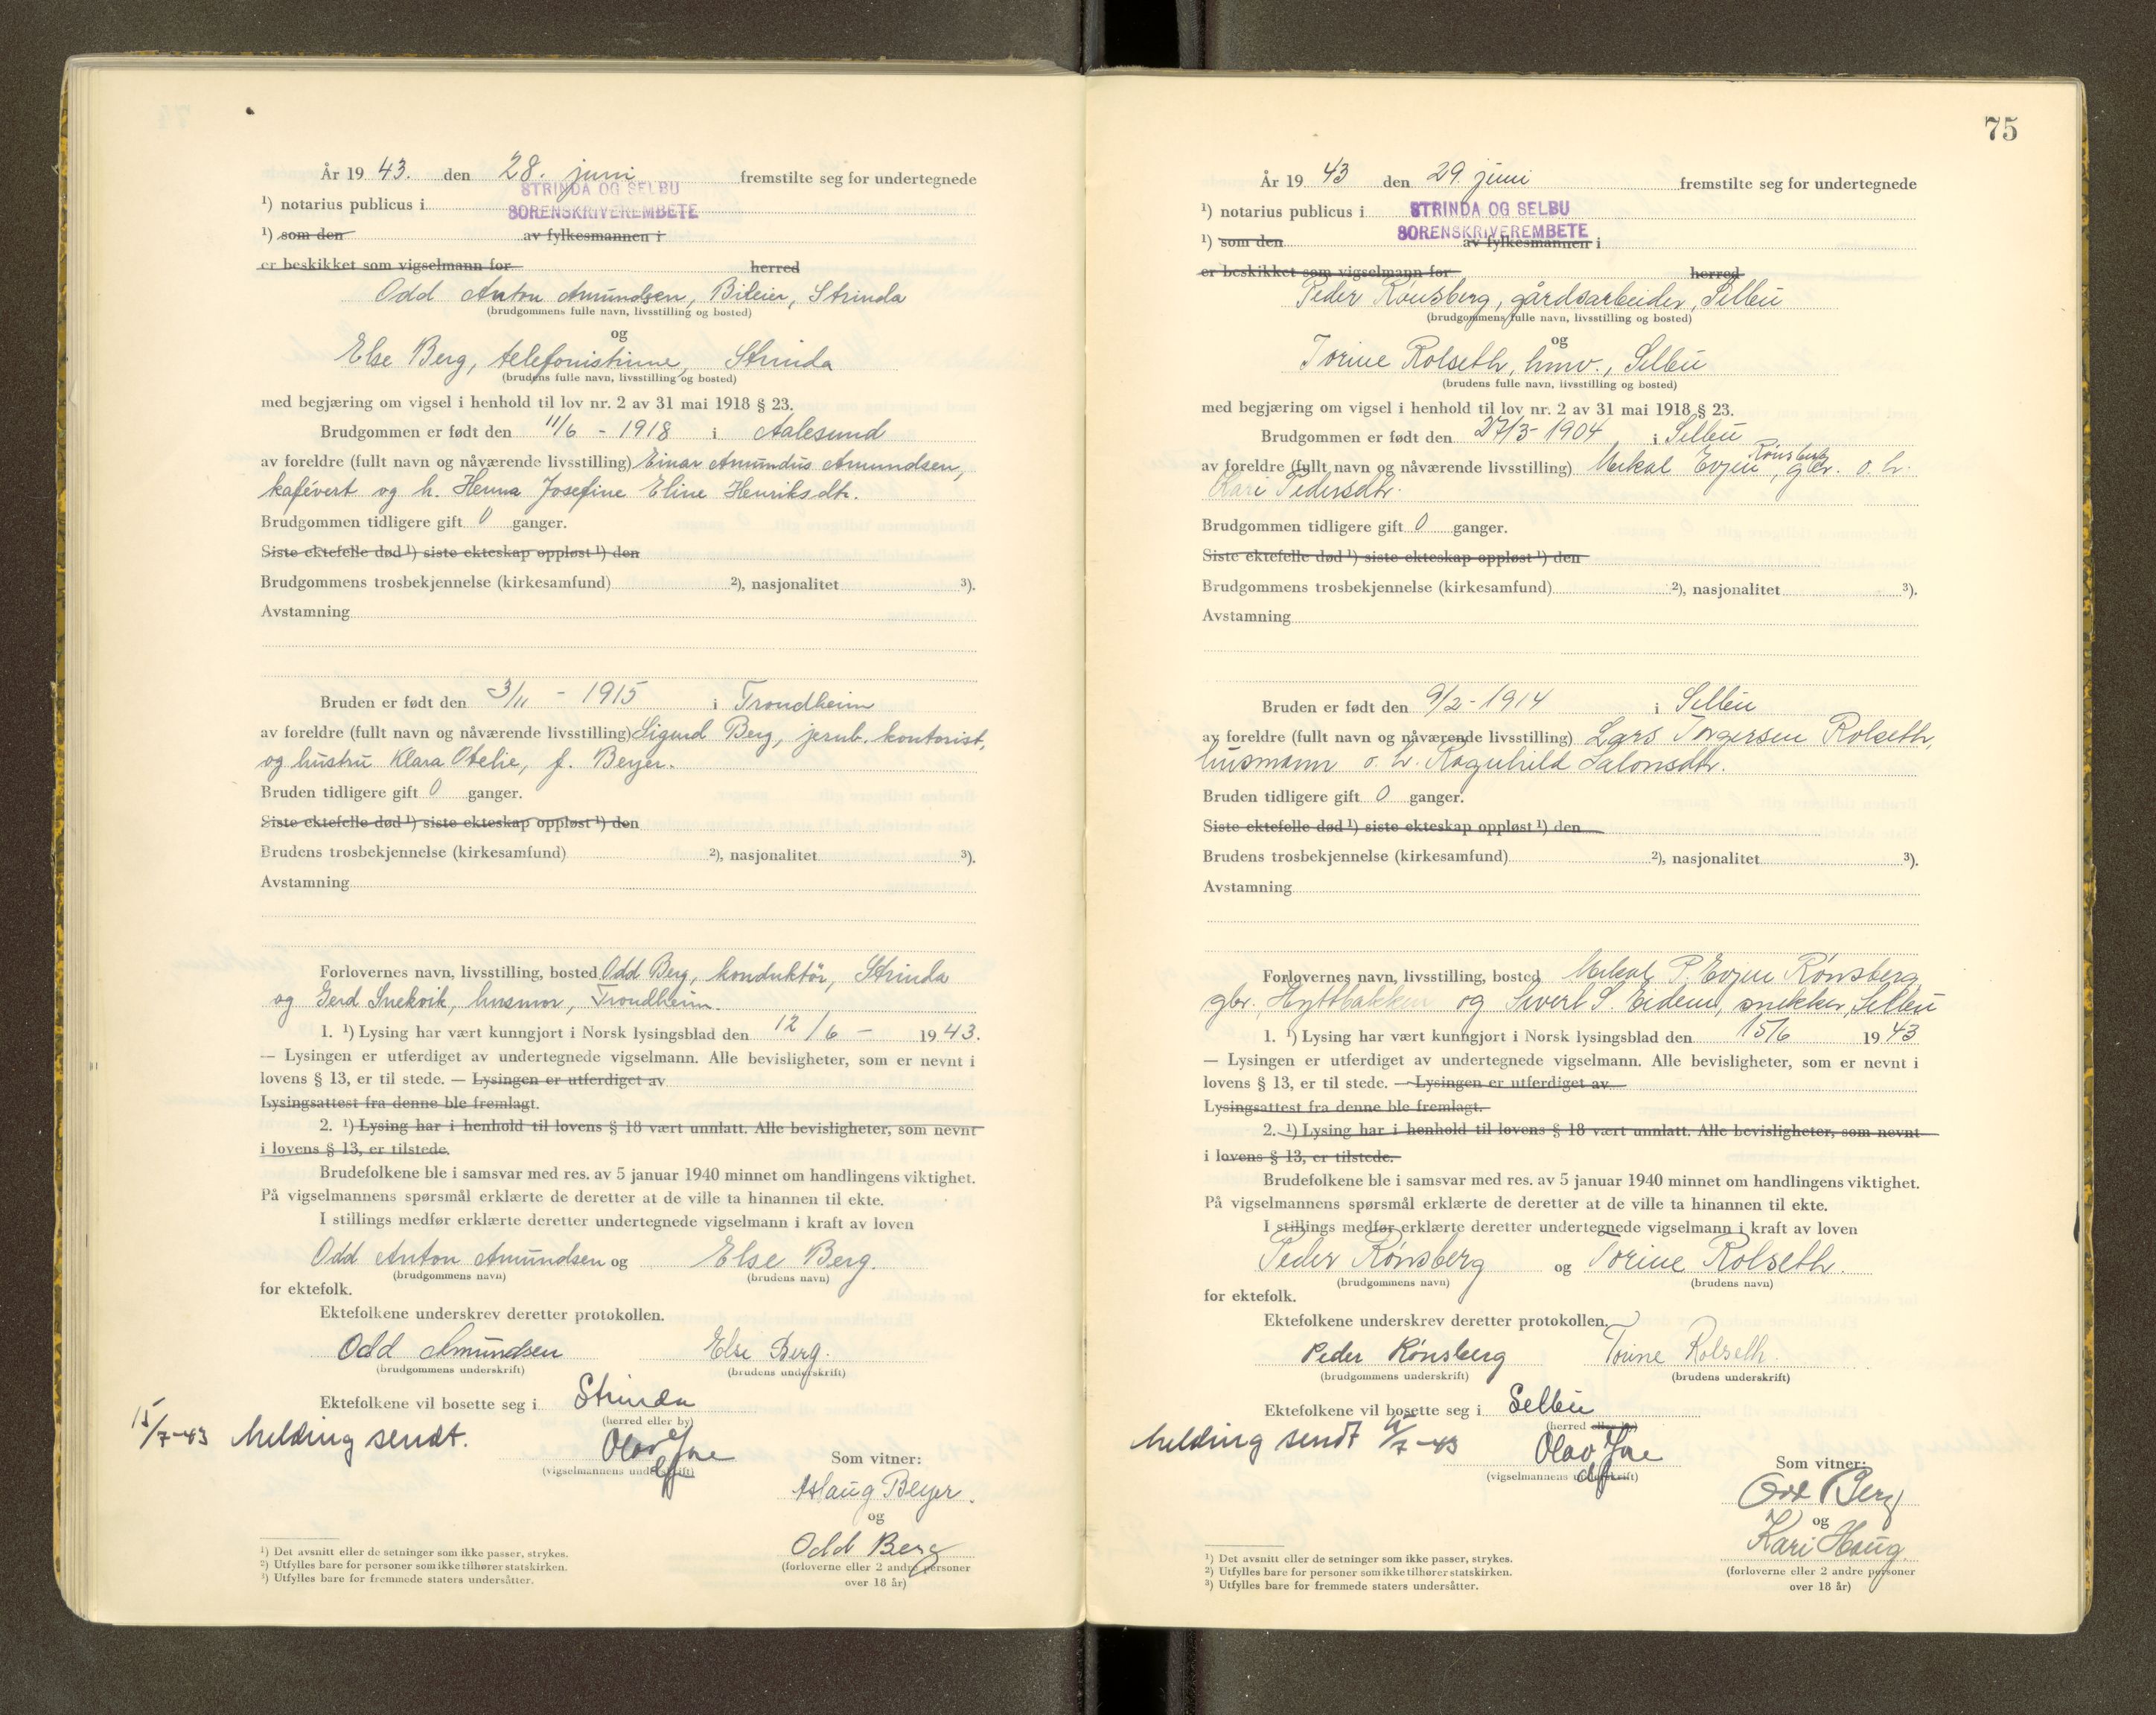 År 19 43. den 28. juni fremstilte seg for undertegnede
¹) notarius publicus i STRINDA OG SELBU
SORENSKRIVEREMBETE
¹) som den av fylkesmannen i
er beskikket som vigselmann for herred
Odd Anton Amundsen, Bileier, Strinda
(brudgommens fulle navn, livsstilling og bosted)
og
Else Berg, telefonistinne, Strinda
(brudens fulle navn, livsstilling og bosted)
med begjæring om vigsel i henhold til lov nr. 2 av 31 mai 1918 § 23.
Brudgommen er født den 11/6 - 1918 i Aalesund
av foreldre (fullt navn og nåværende livsstilling) Einar Amundus Amundsen,
kafévert og h. Henna Josefine Eline Henriksdtr.
Brudgommen tidligere gift 0 ganger.
Siste ektefelle død ¹) siste ekteskap oppløst ¹) den
Brudgommens trosbekjennelse (kirkesamfund) ²), nasjonalitet ³).
Avstamning
Bruden er født den 3/11 - 1915 i Trondheim
av foreldre (fullt navn og nåværende livsstilling) Sigurd Berg, jernb. kontorist,
og hustru Klara Otelie, f. Beyer.
Bruden tidligere gift 0 ganger.
Siste ektefelle død ¹) siste ekteskap oppløst ¹) den
Brudens trosbekjennelse (kirkesamfund) ²), nasjonalitet ³).
Avstamning
Forlovernes navn, livsstilling, bosted Odd Berg, konduktör, Strinda
og Gerd Snekvik, husmor, Trondheim.
1. ¹) Lysing har vært kunngjort i Norsk lysingsblad den 12/6 - 1943.
— Lysingen er utferdiget av undertegnede vigselmann. Alle bevisligheter, som er nevnt i
lovens § 13, er til stede. — Lysingen er utferdiget av
Lysingsattest fra denne ble fremlagt.
2. ¹) Lysing har i henhold til lovens § 18 vært unnlatt. Alle bevisligheter, som nevnt
i lovens § 13, er tilstede.
Brudefolkene ble i samsvar med res. av 5 januar 1940 minnet om handlingens viktighet.
På vigselmannens spørsmål erklærte de deretter at de ville ta hinannen til ekte.
I stillings medfør erklærte deretter undertegnede vigselmann i kraft av loven
Odd Anton Amundsen og Else Berg.
(brudgommens navn) (brudens navn)
for ektefolk.
Ektefolkene underskrev deretter protokollen.
Odd Amundsen Else Berg.
(brudgommens underskrift) (brudens underskrift)
Ektefolkene vil bosette seg i Strinda
(herred eller by)
15/7-43 Melding sendt.
(vigselmannens underskrift)
Som vitner:
Aslaug Beyer.
og
Odd Berg
(forloverne eller 2 andre personer
over 18 år)
¹) Det avsnitt eller de setninger som ikke passer, strykes.
²) Utfylles bare for personer som ikke tilhører statskirken.
³) Utfylles bare for fremmede staters undersåtter.
75
År 19 43 den 29. juni fremstilte seg for undertegnede
¹) notarius publicus i STRINDA OG SELBU
SORENSKRIVEREMBETE
¹) som den av fylkesmannen i
er beskikket som vigselmann for herred
Peder Rønsberg, gårdsarbeider, Selbu
(brudgommens fulle navn, livsstilling og bosted)
og
Torine Rolseth, hmv., Selbu
(brudens fulle navn, livsstilling og bosted)
med begjæring om vigsel i henhold til lov nr. 2 av 31 mai 1918 § 23.
Brudgommen er født den 27/3-1904 i Selbu
av foreldre (fullt navn og nåværende livsstilling) Mikal Evjen Rønsberg, gbr. o. h.
Kari Pedersdtr.
Brudgommen tidligere gift 0 ganger.
Siste ektefelle død ¹) siste ekteskap oppløst ¹) den
Brudgommens trosbekjennelse (kirkesamfund) ²), nasjonalitet ³).
Avstamning
Bruden er født den 9/2-1914 i Selbu
av foreldre (fullt navn og nåværende livsstilling) Lars Torgersen Rolseth,
husmann o. h. Ragnhild Salonsdtr.
Bruden tidligere gift 0 ganger.
Siste ektefelle død ¹) siste ekteskap oppløst ¹) den
Brudens trosbekjennelse (kirkesamfund) ²), nasjonalitet ³).
Avstamning
Forlovernes navn, livsstilling, bosted Mikal P. Evjen Rønsberg,
gbr., Hyttbakken og Sivert S. Eidem, snekker, Selbu
1. ¹) Lysing har vært kunngjort i Norsk lysingsblad den 15/6 1943
— Lysingen er utferdiget av undertegnede vigselmann. Alle bevisligheter, som er nevnt i
lovens § 13, er til stede. — Lysingen er utferdiget av
Lysingsattest fra denne ble fremlagt.
2. ¹) Lysing har i henhold til lovens § 18 vært unnlatt. Alle bevisligheter, som nevnt
i lovens § 13, er tilstede.
Brudefolkene ble i samsvar med res. av 5 januar 1940 minnet om handlingens viktighet.
På vigselmannens spørsmål erklærte de deretter at de ville ta hinannen til ekte.
I stillings medfør erklærte deretter undertegnede vigselmann i kraft av loven
Peder Rønsberg og Torine Rolseth.
(brudgommens navn) (brudens navn)
for ektefolk.
Ektefolkene underskrev deretter protokollen.
Peder Rønsberg Torine Rolseth.
(brudgommens underskrift) (brudens underskrift)
Ektefolkene vil bosette seg i Selbu
(herred eller by)
Melding sendt 15/7-43
(vigselmannens underskrift)
Som vitner:
Odd Berg
og
Kari Haug.
(forloverne eller 2 andre personer
over 18 år)
¹) Det avsnitt eller de setninger som ikke passer, strykes.
²) Utfylles bare for personer som ikke tilhører statskirken.
³) Utfylles bare for fremmede staters undersåtter.